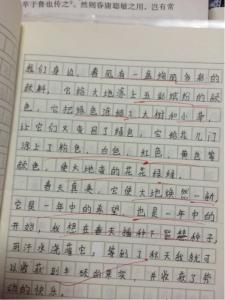 卒于鲁也传之。然则昏庸聪敏之用，岂有常
我们身边，春风有一盒绚丽多彩的
颜料，它给大地涂上五彩缤纷的颜
色，它把绿色涂给了大树和小草，
让它们又变回了绿色，它给花儿们
涂上了粉色、白色、红色、黄色等
颜色，使大地变的花花绿绿。
春天真美，它使大地焕然一新，
它是一年中的希望，也是一年中的
开始，我想在春天播种下理想种子，
用汗水浇灌它，等到了秋天我就可
以收获到丰硕的果实，并收获了劳
动的快乐。